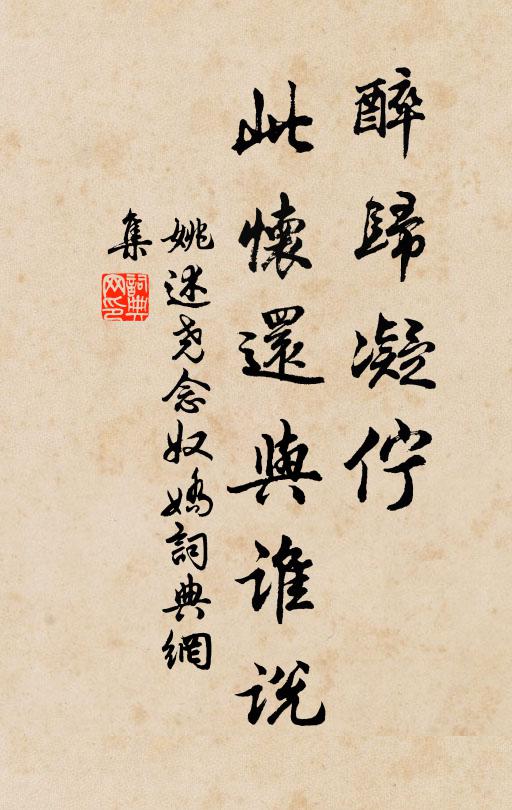 醉歸凝佇
此懷還與誰說
姚述尧念奴嬌詞典網
集
詞典網印